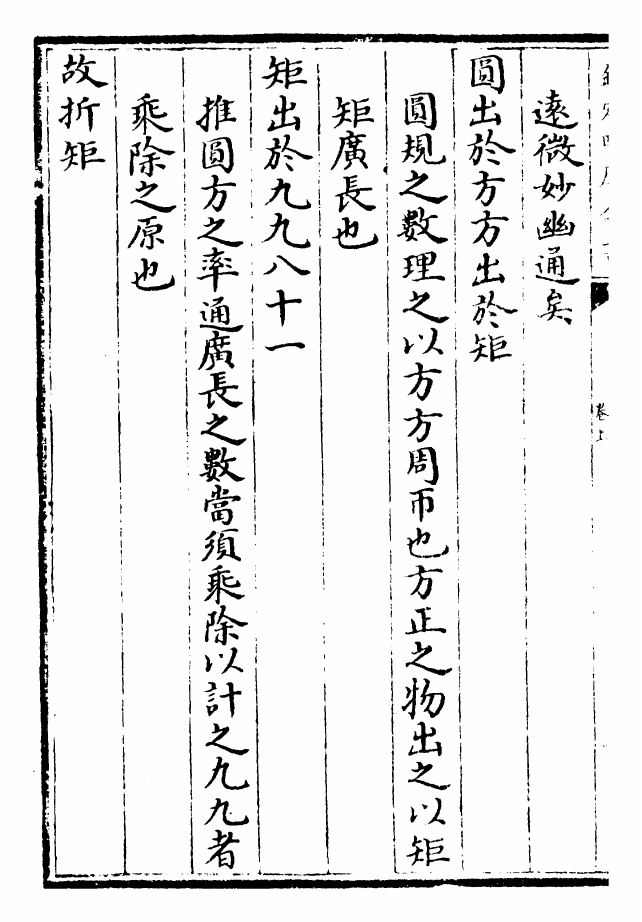 遠微妙幽通矣
圓出於方方出於矩
圓規之數理之以方方周帀也方正之物出之以矩
矩廣長也
矩出於九九八十一
推圓方之率通廣長之數當須乘除以計之九九者
乘除之原也
故折矩
卷上